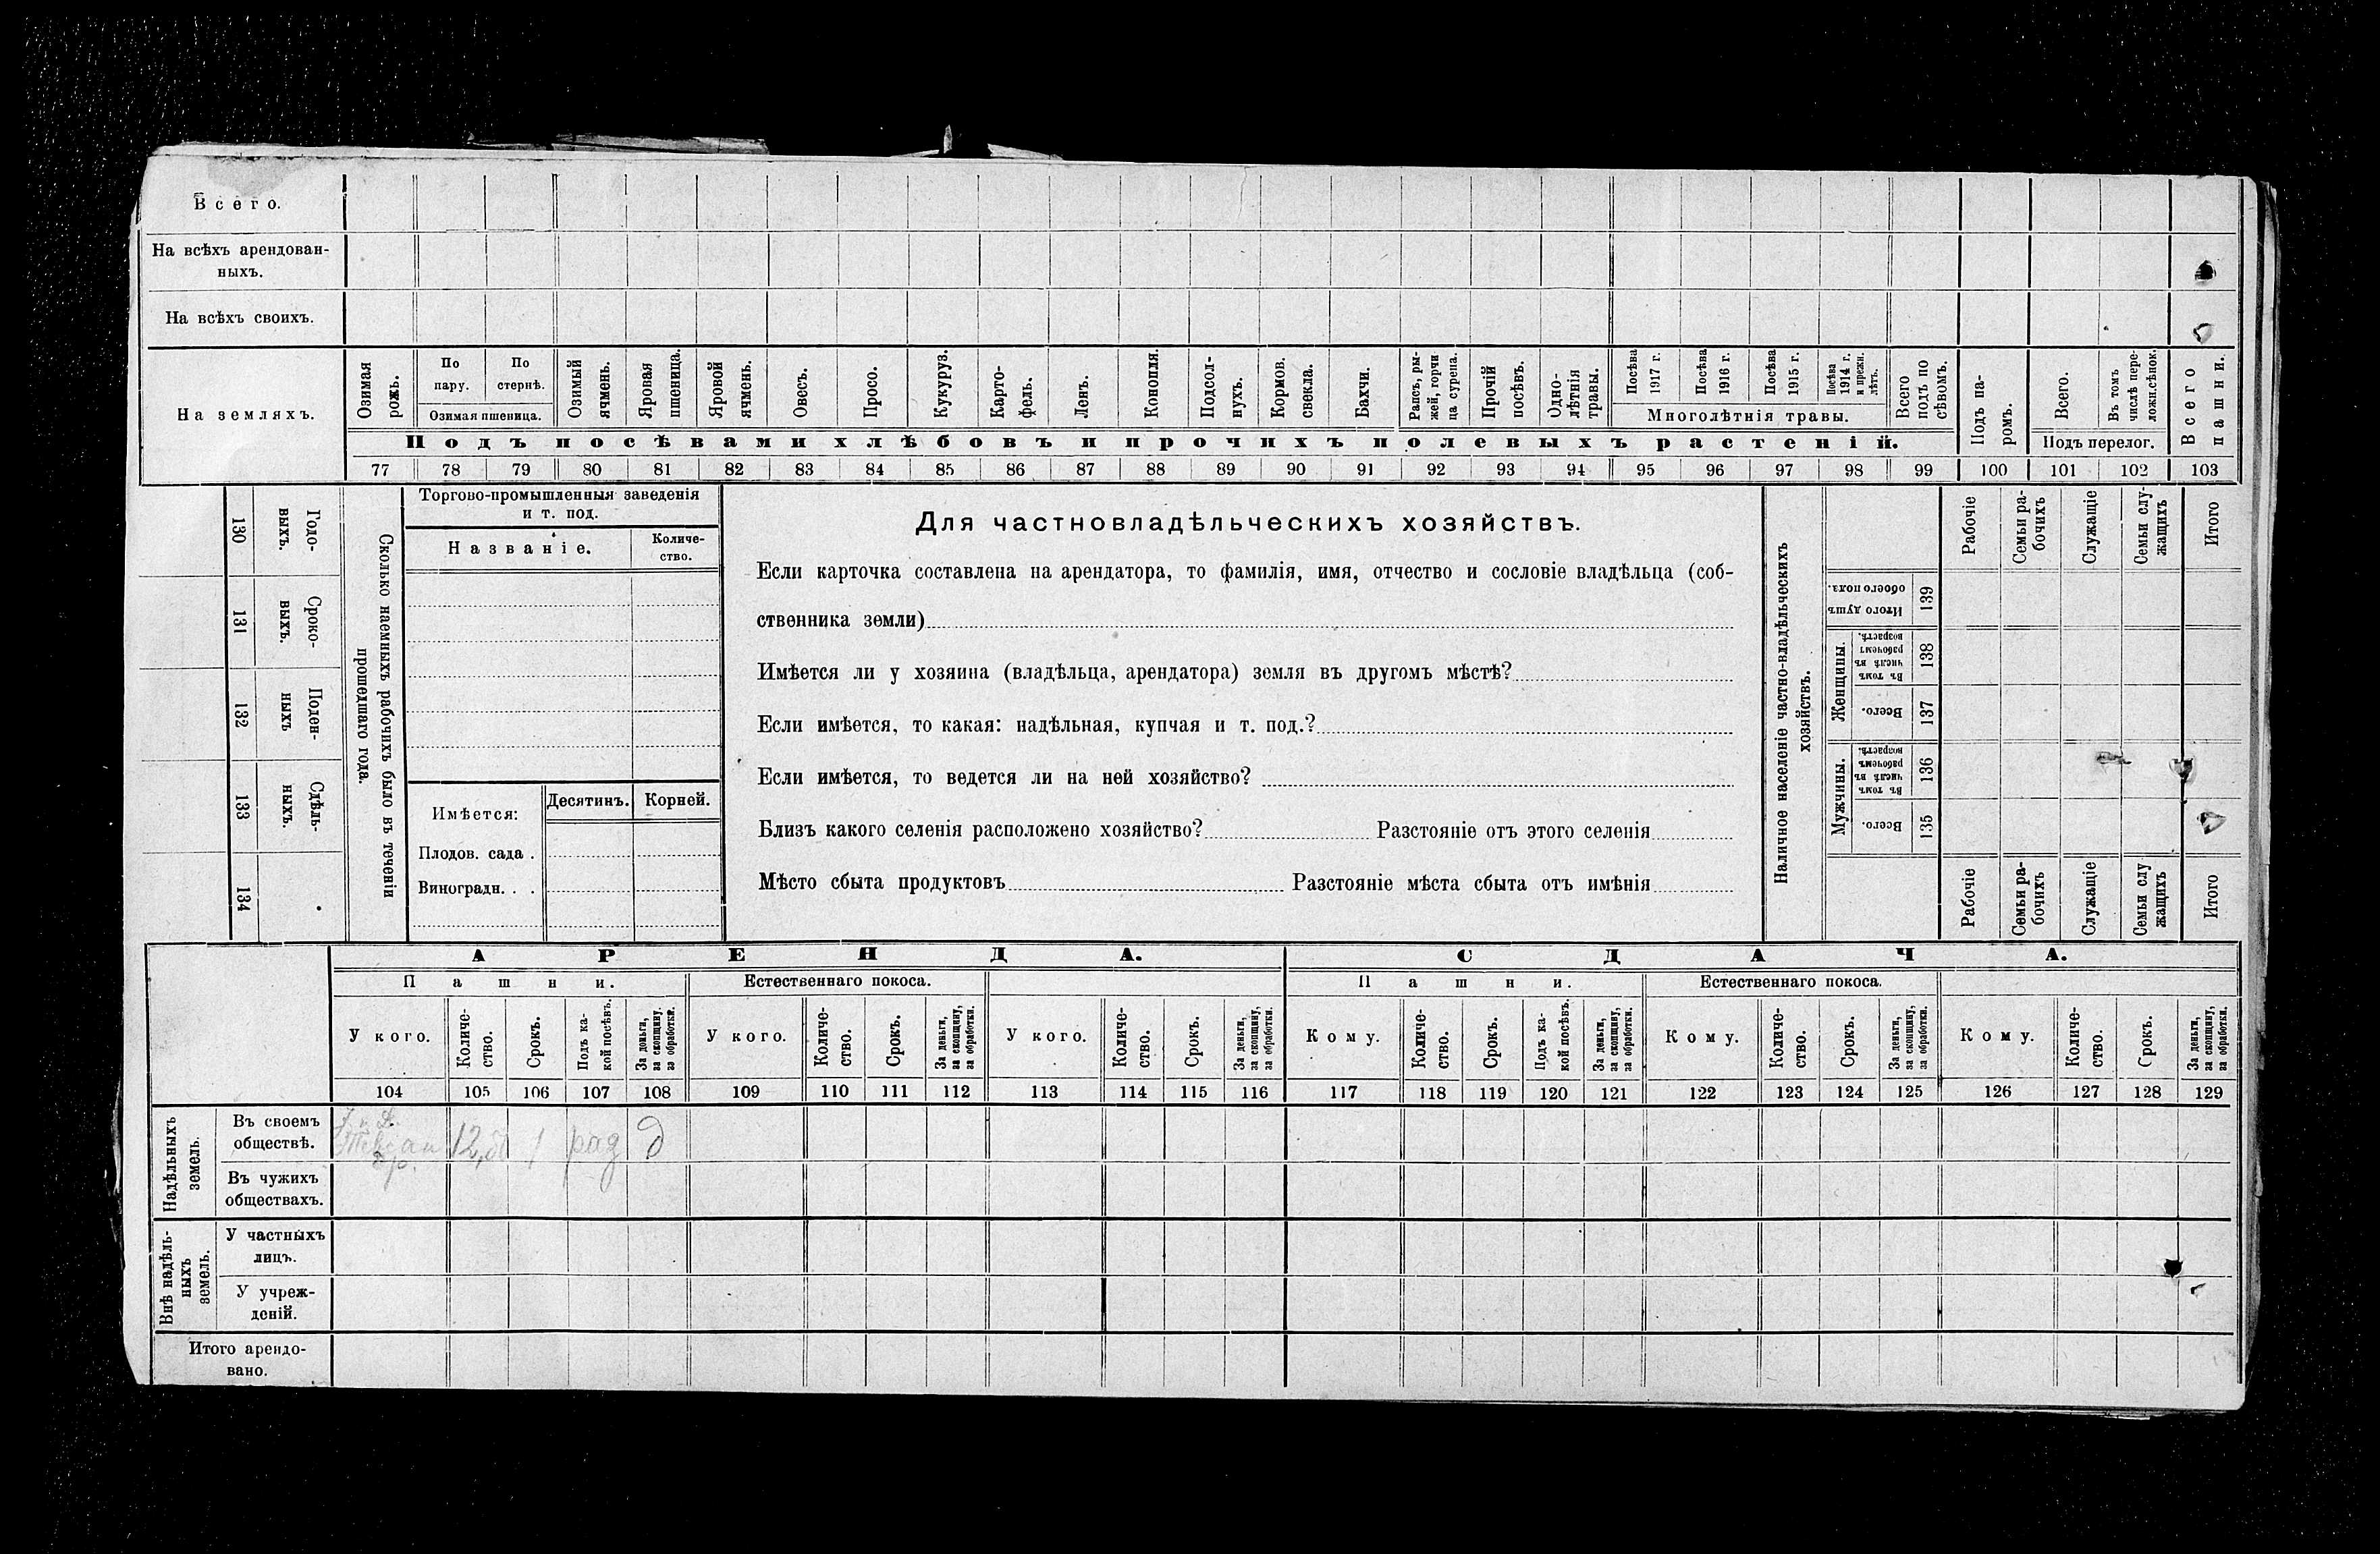 Всего.
На всѣхъ арендован-
ныхъ.
На всѣхъ своихъ.
На земляхъ.
Озимая рожь.
По пару.
По стернѣ.
Озимая пшеница.
Озимый ячмень.
Яровая пшеница.
Яровой ячмень.
Овесъ.
Просо.
Кукуруз.
Карто-
фель.
Ленъ.
Конопля.
Подсол-
нухъ.
Кормов. свекла.
Бахчи.
Рапсъ, ры-
жей, горчи
ца сурепа.
Прочій посѣвъ.
Одно-
лѣтнія
травы.
Посѣва 1917 г.
Посѣва 1916 г.
Посѣва 1915 г.
Посѣва 1914 г. и прежн. лѣтъ.
Многолѣтнія травы.
Всего подъ по сѣвомъ.
Подъ па-
ромъ.
Всего.
Въ томъ числѣ пере-
ложн.сѣнок.
Подъ перелог.
Всего пашни.
Подъ посѣвами хлѣбовъ и прочихъ полевыхъ растеній.
77 78 79 80 81 82 83 84 85 86 87 88 89 90 91 92 93 94 95 96 97 98 99 100 101 102 103
130 Годо-
выхъ.
131 Сроко-
выхъ.
132 Поден-
ныхъ
133 Сдѣль-
ныхъ.
134
Сколько наемныхъ рабочихъ было въ теченіи
прошедшаго года.
Торгово-промышленныя заведенія
и т. под.
Названіе.
Количе-
ство.
Имѣется:
Десятинъ.
Корней.
Плодов. сада .
Виноградн. . .
Для частновладѣльческихъ хозяйствъ.
Если карточка составлена на арендатора, то фамилія, имя, отчество и сословіе владѣльца (соб-
ственника земли)
Имѣется ли у хозяина (владѣльца, арендатора) земля въ другомъ мѣстѣ?
Если имѣется, то какая: надѣльная, купчая и т. под.?
Если имѣется, то ведется ли на ней хозяйство?
Близъ какого селенія расположено хозяйство? Разстояніе отъ этого селенія
Мѣсто сбыта продуктовъ Разстояніе мѣста сбыта отъ имѣнія
Наличное населеніе частно-владѣльческихъ
хозяйствъ.
Рабочіе
Семьи ра-
бочихъ
Служащіе
Семьи слу-
жащихъ
Итого
Итого душъ обоего пола.
139
Женщины.
Въ томъ числѣ въ рабочемъ возрастѣ.
138
Всего.
137
Мужчины.
Въ томъ числѣ въ рабочемъ возрастѣ.
136
Всего.
135
Рабочіе
Семьи ра-
бочихъ
Служащіе
Семьи слу
жащихъ
Итого
АРЕНДА.
СДАЧА.
Пашни.
Естественнаго покоса.
Пашни.
Естественнаго покоса.
У кого.
Количе-
ство.
Срокъ.
Подъ ка-
кой посѣвъ.
За деньги,
за скопщину,
за обработки.
У кого.
Количе-
ство.
Срокъ.
За деньги,
за скопщину,
за обработки.
У кого.
Количе-
ство.
Срокъ.
За деньги,
за скопщину,
за обработки.
Кому.
Количе-
ство.
Срокъ.
Подъ ка-
кой посѣвъ.
За деньги,
за скопщину,
за обработки.
Кому.
Количе-
ство.
Срокъ.
За деньги,
за скопщину,
за обработки.
Кому.
Количе-
ство.
Срокъ.
За деньги,
за скопщину,
за обработки.
104 105 106 107 108 109 110 111 112 113 114 115 116 117 118 119 120 121 122 123 124 125 126 127 128 129
Надѣльныхъ
земель.
Въ своемъ
обществѣ.
1 д
Въ чужихъ
обществахъ.
Внѣ надѣль-
ныхъ
земель.
У частныхъ
лицъ.
У учреж-
деній.
Итого арендо-
вано.